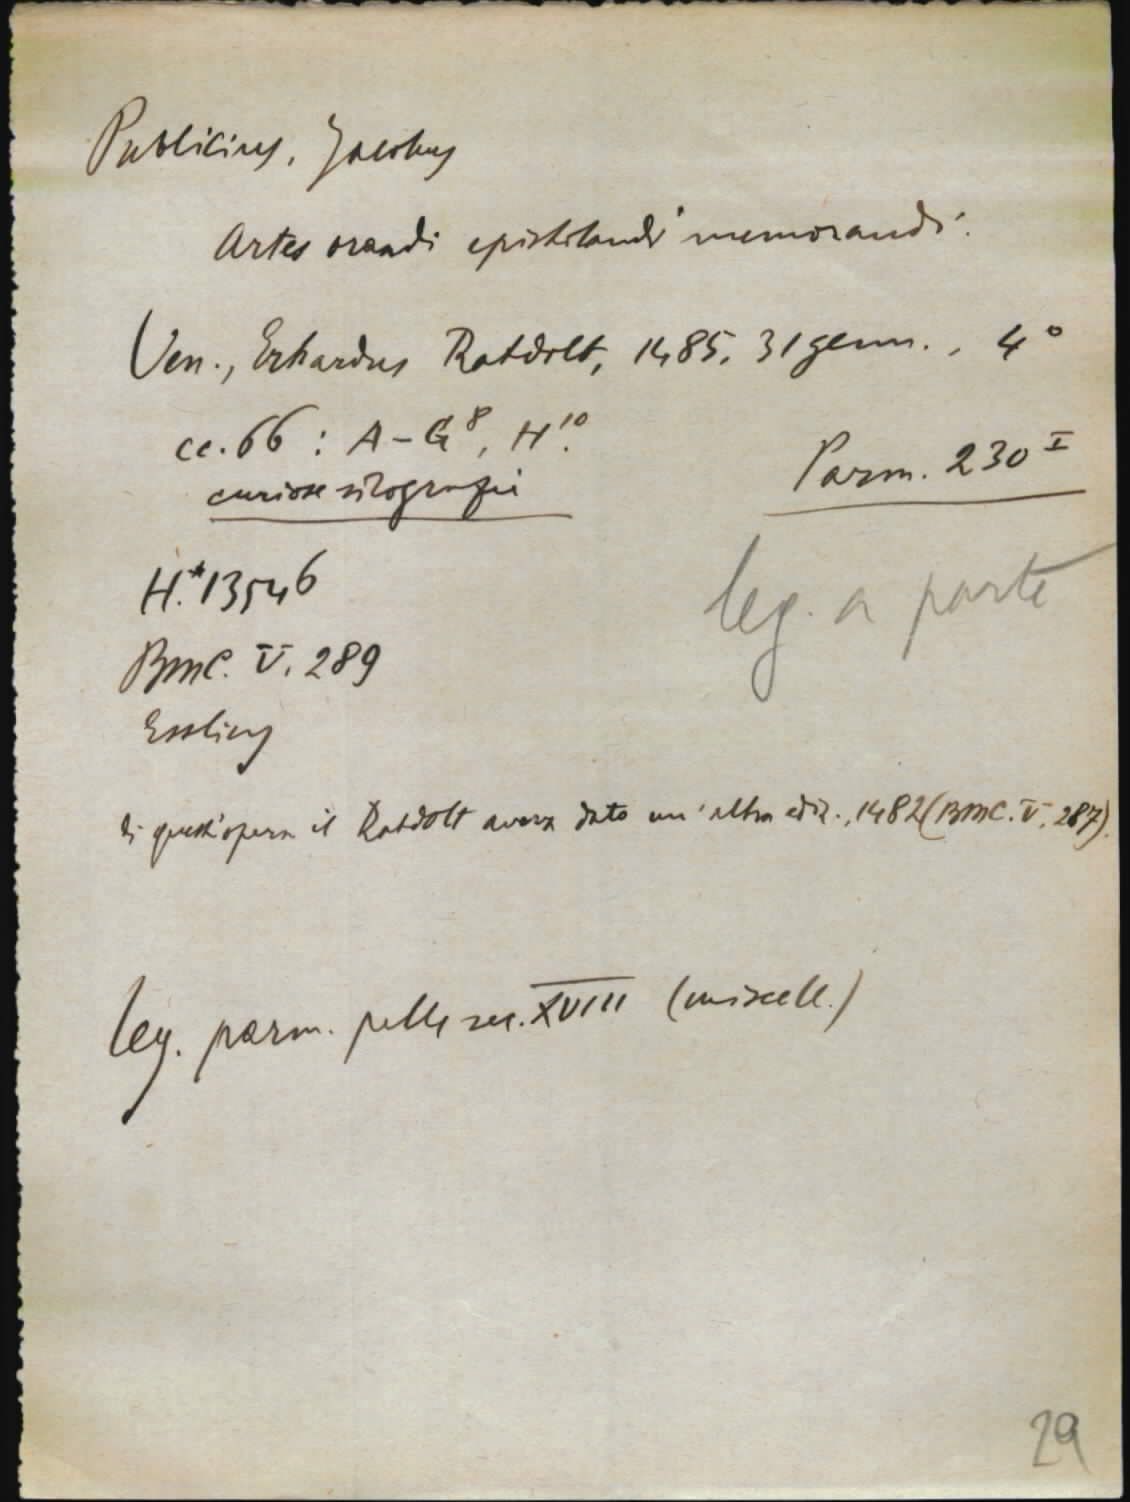 Publicius, Jacobus
Artes orandi epistolandi memorandi.
Ven., Erhardus Ratdolt, 1485, 31 genn., 4°
cc. 66 : A-G⁸, H¹⁰.
curiose silografie
Parm. 230 I
leg. a parte
H.*13546
BMC. V. 289
Essling
di quest'opera il Ratdolt aveva dato un'altra ediz., 1482 (BMC. V. 287).
leg. parm. pelle sec. XVIII (miscell.)
29